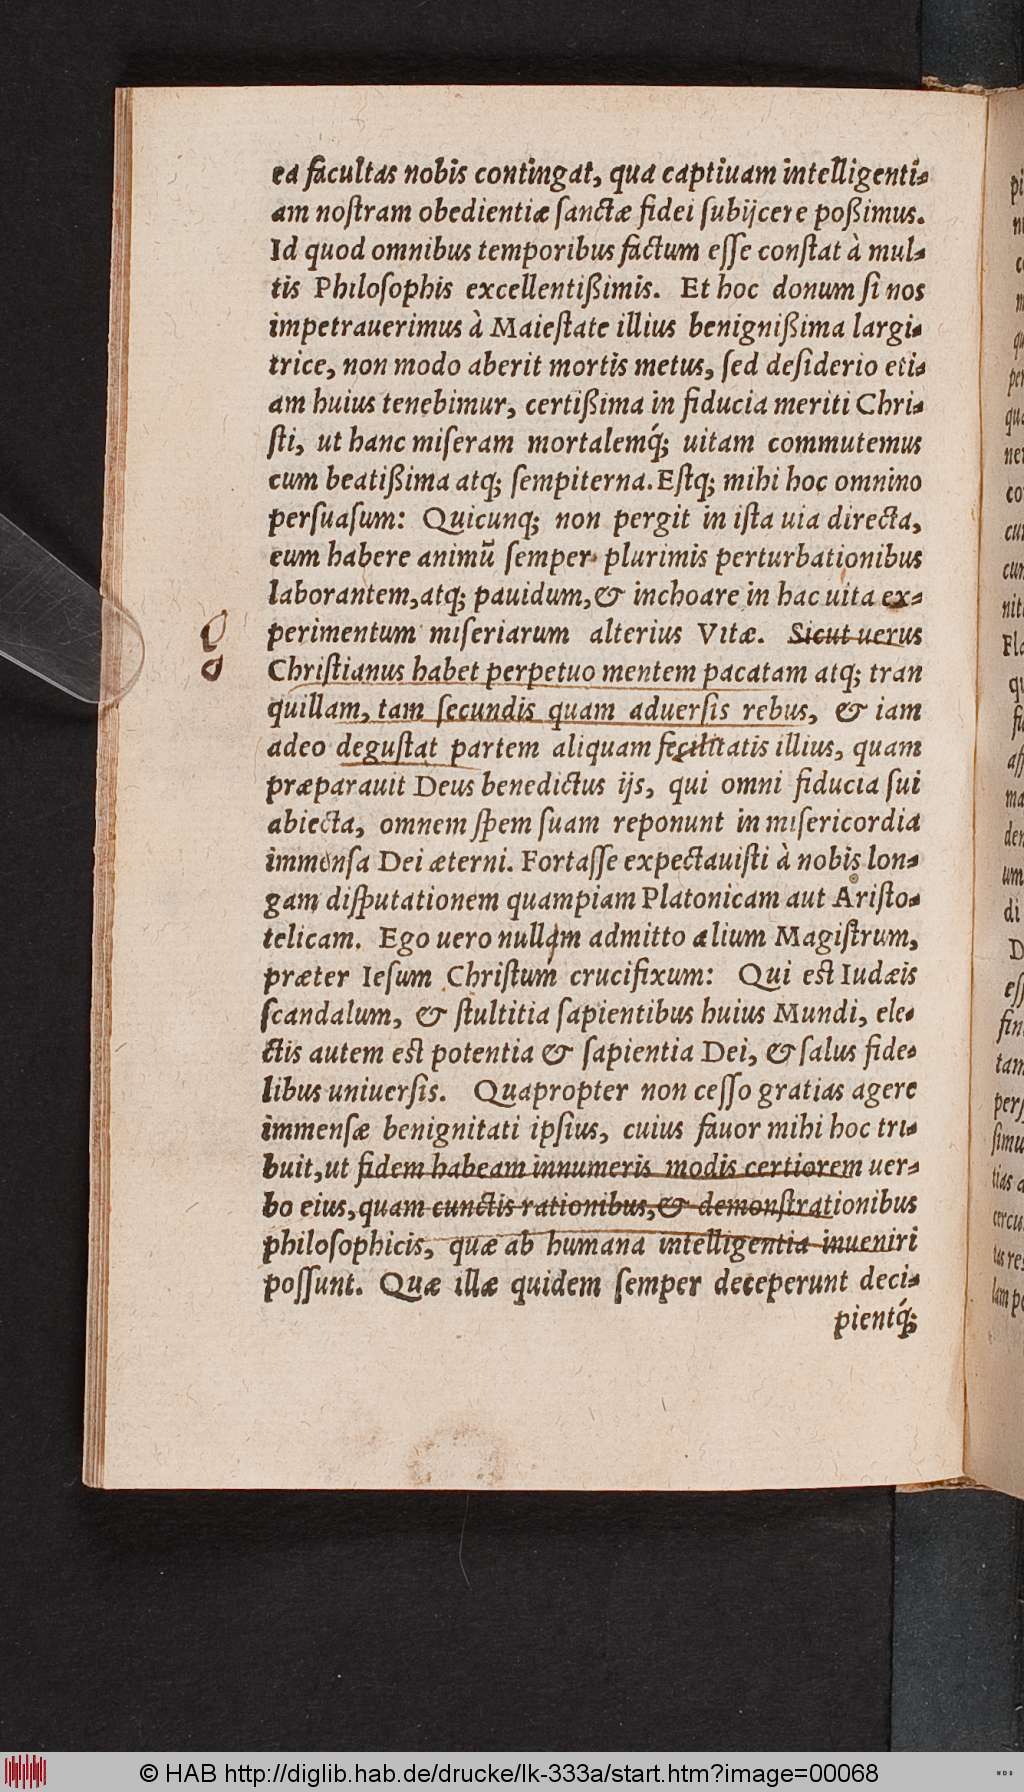 ea facultas nobis contingat, qua captiuam intelligenti-
am noſtram obedientiæ ſanctæ fidei ſubijcere poßimus.
Id quod omnibus temporibus factum eſſe conſtat à mul-
tis Philoſophis excellentißimis. Et hoc donum ſi nos
impetrauerimus à Maieſtate illius benignißima largi-
trice, non modo aberit mortis metus, ſed deſiderio eti-
am huius tenebimur, certißima in fiducia meriti Chri-
ſti, ut hanc miſeram mortalemq́; uitam commutemus
cum beatißima atq; ſempiterna. Eſtq; mihi hoc omnino
perſuaſum: Quicunq; non pergit in iſta uia directa,
eum habere animũ ſemper plurimis perturbationibus
laborantem, atq; pauidum, & inchoare in hac uita ex-
perimentum miſeriarum alterius Vitæ. Sicut uerus
Chriſtianus habet perpetuo mentem pacatam atq; tran
quillam, tam ſecundis quam aduerſis rebus, & iam
adeo deguſtat partem aliquam fęcilitatis illius, quam
præparauit Deus benedictus ijs, qui omni fiducia ſui
abiecta, omnem ſpem ſuam reponunt in miſericordia
immenſa Dei æterni. Fortaſſe expectauiſti à nobis lon-
gam diſputationem quampiam Platonicam aut Ariſto-
telicam. Ego uero nullam admitto alium Magiſtrum,
præter Ieſum Chriſtum crucifixum: Qui eſt Iudæis
ſcandalum, & ſtultitia ſapientibus huius Mundi, ele-
ctis autem eſt potentia & ſapientia Dei, & ſalus fide-
libus uniuerſis. Quapropter non ceſſo gratias agere
immenſæ benignitati ipſius, cuius fauor mihi hoc tri-
buit, ut fidem habeam innumeris modis certiorem uer-
bo eius, quam cunctis rationibus, & demonſtrationibus
philoſophicis, quæ ab humana intelligentia inueniri
poſſunt. Quæ illæ quidem ſemper deceperunt deci-
pientq́;
© HAB http://diglib.hab.de/drucke/lk-333a/start.htm?image=00068